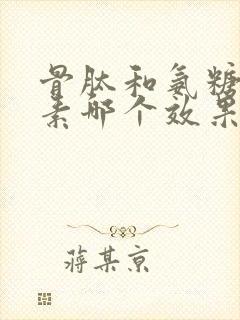 骨肽和氨糖
素哪个效果
蒋某京